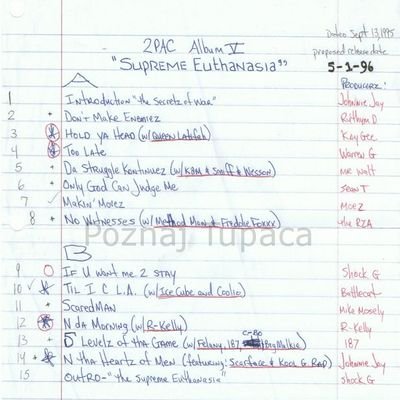 Dated Sept 13, 1995
2PAC Album V
proposed release date
"Supreme Euthanasia"
5-1-96
A
Producerz:
1 Introduction "the secretz of war" Johnnie Jay
2 + Don't Make Enemiez Rhythm D
3 * Hold ya Head (w/Queen Latifah) Kay Gee
4 * Too Late Warren G
5 + Da Struggle Kontinuez (w/KBM & Smiff & Wesson) mr walt
6 + Only God Can Judge Me Sean T
7 ✓ Makin' Movez Moe Z
8 + No Witnesses (w/Method Man & Freddie Foxxx) the RZA
Poznaj Tupaca
B
9 O If U want me 2 stay Shock G
10 ✓ * Til I C L.A. (w/Ice Cube and Coolio) Battlecat
11 + ScaredMan Mike Mosely
12 * N da Morning (w/R-Kelly) R-Kelly
C-Bo
13 + 5 Levelz of tha Game (w/Felony, 187 Big Malkie) 187
14 + * N tha Heartz of Men (featuring: Scarface & Kool G. Rap) Johnnie Jay
15 Outro-"the Supreme Euthanasia" Shock G